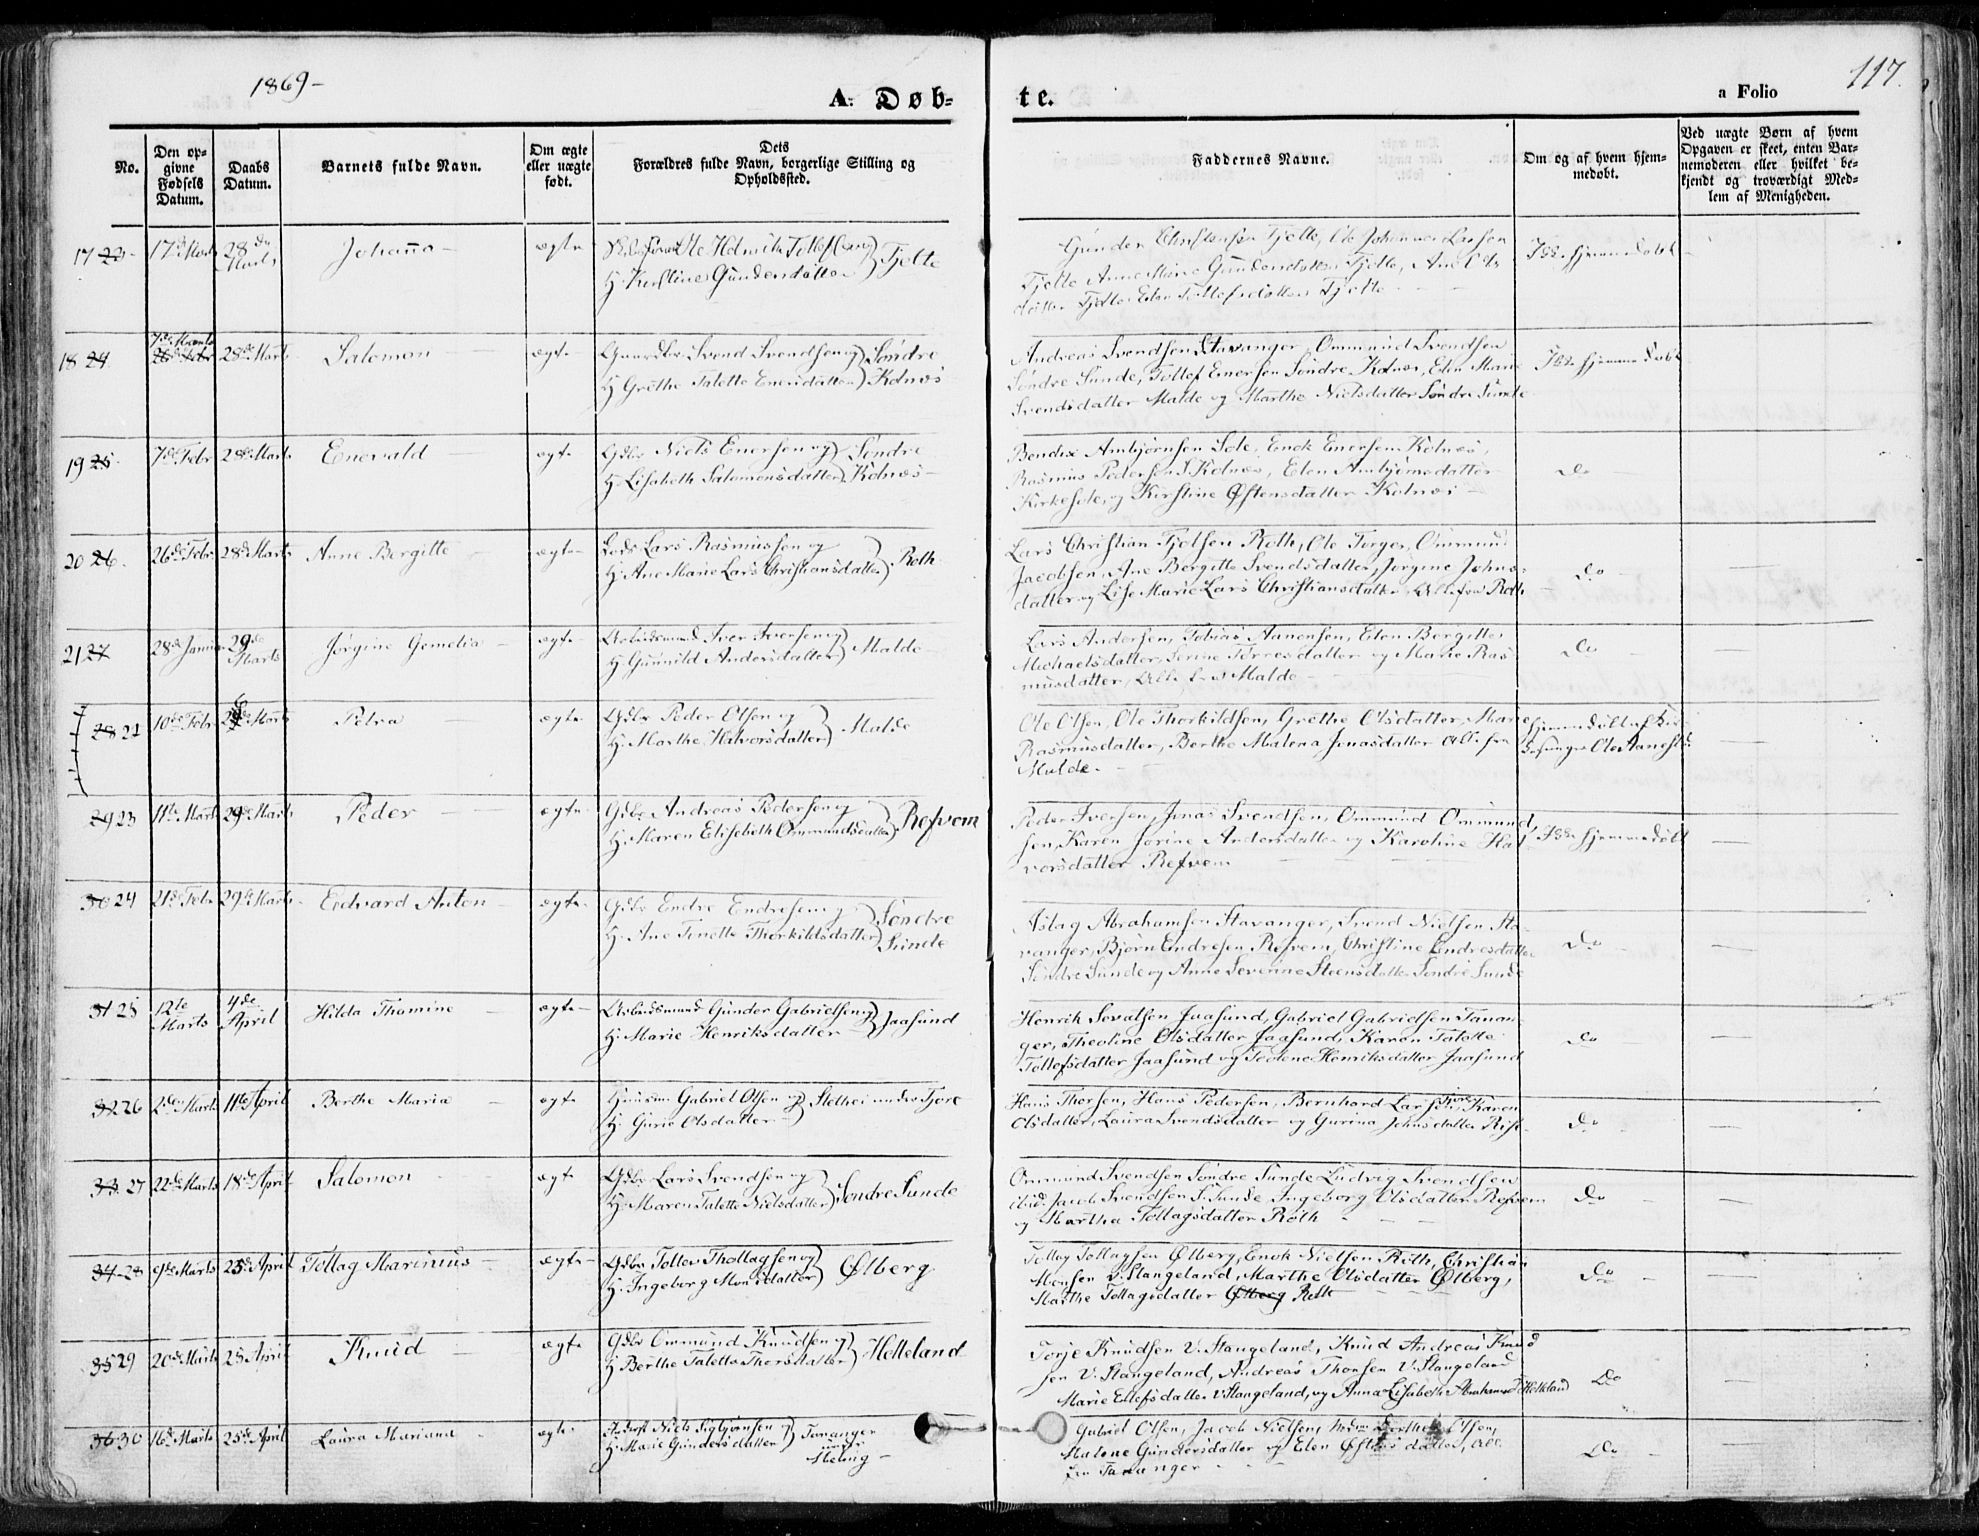 1869-
117.
A. Døb-
te.
a Folio
No.
Den op-
givne
Fødsels
Datum.
Daabs
Datum.
Barnets fulde Navn.
Om ægte
eller uægte
født.
Dets
Forældres fulde Navn, borgerlige Stilling og
Opholdssted.
Faddernes Navne.
Om og af hvem hjem-
medøbt.
Ved uægte Børn af hvem
Opgaven er skeet, enten Bar-
nemoderen eller hvilket be-
kjendt og troværdigt Med-
lem af Menigheden.
17 23 17de Marts 28de Marts Johanna ægte Ole Tollefsen og
H. Kirstine Gundersdatter Tjelte
Gunder Christensen Tjelte, Ole Johannes Larsen
Tjelte Anne Marie Gundersdatter Tjelte, Ane Ols
datter Tjelte Elen Tollefsdatter Tjelte
Ikke hjemmedøbt
18 24 7de Marts 28de Marts Salomon ægte Gaardbr Svend Svendsen og Søndre
H. Grethe Talette Enersdatter Kolnæs
Andreas Svendsen Stavanger, Ommund Svendsen
Søndre Sunde, Tollef Enersen Søndre Kolnæs, Elen Marie
Svendsdatter Malde og Marthe Nielsdatter Søndre Sunde
Ikke hjemmedøbt
19 25 7de Febr 28de Marts Enevald ægte Gdbr Niels Enersen og Søndre
H. Lisabeth Salomonsdatter Kolnæs
Bendix Ambjørnsen Sole, Enok Enersen Kolnæs,
Rasmus Pedersen S. Kolnæs, Elen Ambjørnsdatter
Kirkesole, og Kirstine Østensdatter Kolnæs
Do
20 26 26de Febr 28de Marts Anne Bergitte ægte Lars Rasmussen og
H. Ane Marie Lars Christiansdatter Roth
Lars Christian Tjølsen Roth, Ole Torger, Ommund
Jacobsen, Ane Bergitte Svendsdatter, Jorgine Johns-
datter og Lise Marie Lars Christiansdatter, Alle fra Roth
Do
21 27 28de Januar 29de Marts Jørgine Gemelia ægte Arbeidsmand Iver Iversen og
H. Gunnild Andersdatter Malde
Lars Andersen, Tobias Aanensen, Elen Bergitte
Michaelsdatter, Serine Torresdatter og Marie Ras-
musdatter, Alle fra Malde
Do
28 22 10de Febr Marts Petra ægte Gdbr Peder Olsen og
H. Marthe Halvorsdatter Malde
Ole Olsen, Ole Thorkildsen, Grethe Olsdatter, Marie
Rasmusdatter, Berthe Malena Jonasdatter Alle fra
Malde.
hjemmedøbt af Kir-
kesanger Ole
29 23 11te Marts 29de Marts Peder ægte Gdbr Andreas Pedersen og
H. Maren Elisebeth Ommundsdatter Refvem
Peder Iversen, Jonas Svendsen, Ommund Ommund
sen, Karen Serine Andersdatter og Karoline Hal
vorsdatter Refvem
Ikke hjemmedøbt
30 24 21de Febr 29de Marts Edvard Anton ægte Gdbr Endre Endresen og Søndre
H. Ane Tinette Thorkildsdatter Sunde
Aslag Abrahamsen Stavanger, Svend Nielsen Sta-
vanger, Bjørn Endresen Refvem, Christine Endresdatter
Søndre Sunde og Anne Severine Steensdatter Søndre Sunde
Do
31 25 12te Marts 4de April Hilda Thomine ægte Arbeidsmand Gunder Gabrielsen og
H. Marie Henriksdatter Jaasund
Henrik Sevalsen Jaasund, Gabriel Gabrielsen Tanan-
ger, Theoline Olsdatter Jaasund, Karen Talette
Tollefsdatter Jaasund og Teolene Henriksdatter Jaasund
Do
32 26 2den Marts 11te April Berthe Maria ægte Huusm Gabriel Olsen og
H. Gurie Olsdatter Slethei under Tjore
Hans Thorsen, Hans Pedersen, Bernhard Larsen Tjore, Karen
Olsdatter, Laura Svendsdatter og Gurina Johnsdatter
Do
33 27 22de Marts 18de April Salomon ægte Gdbr Lars Svendsen og
H. Maren Talette Nielsdatter Søndre Sunde
Ommund Svendsen Søndre Sunde Ludvig Svendsen
ibid. Jacob Svendsen S. Sunde Ingeborg Olsdatter Refvem
og Martha Tollagsdatter Roth
Do
34 28 9de Marts 25de April Tollag Marinius ægte Gdbr Tollev Thollagsen og
H. Ingeborg Monsdatter Ølberg
Tollag Tollagsen Ølberg, Enok Nielsen Roth, Christian
Monsen V. Stangeland, Marthe Olsdatter Ølberg,
Marthe Tollagsdatter Ølberg Roth
Do
35 29 20de Marts 25 April Knud ægte Gdbr Ommund Knudsen og
H Berthe Talette Thorsdatter Helleland
Torje Knudsen V. Stangeland, Knud Andreas Knud
sen V. Stangeland, Andreas Thorsen V. Stangeland
Marie Ellefsdatter V. Stangeland, og Anna Lisabeth Abrahamsd Helleland
Do
36 30 16de Marts 25de April Laura Mariana ægte Niels Sigbjørnsen og
H. Marie Gundersdatter Tananger
under
Meling
Gabriel Olsen, Jacob Nielsen, Berthe Olsen,
Malene Gundersdatter og Elen Østensdatter, Alle
fra Tananger
Do